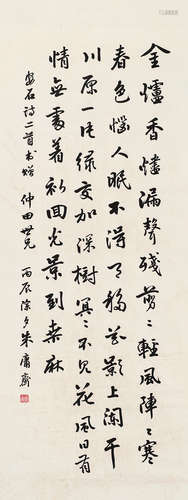 金爐香燼漏聲殘剪〻輕風陣〻寒
春色惱人眠不得月移花影上闌干
川原一片綠交加深樹冥〻不見花風日有
情無處着初回光景到桑麻
安石詩二首書贈 仲田世兄 丙辰除夕朱庸齋